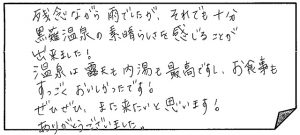 残念ながら雨でしたが、それでも十分
黒薙温泉の素晴らしさを感じることが
出来ました!
温泉は露天も内湯も最高ですし、お食事も
すっごくおいしかったです!
ぜひぜひ、また来たいと思います!
ありがとうございました。